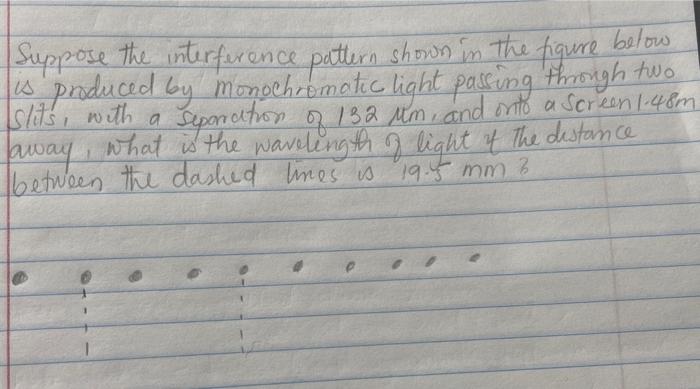 Suppose the interference pattern shown in the figure below
is produced by monochromatic light passing through two
slits, with a separation of 132 μm, and onto a screen 1.48m
away, what is the wavelength of light if the distance
between the dashed lines is 19.5 mm ?